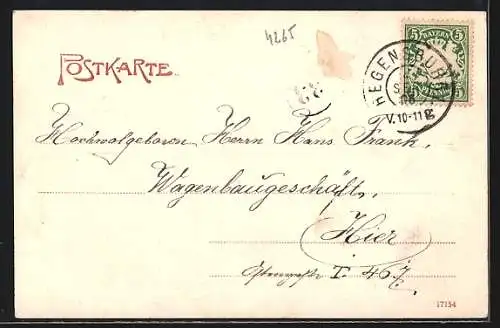 4265
POSTKARTE
BAYERN
5 5
5 5
PFENNIG
REGENSBURG
V.10-11
Hochwolgeboren Herrn Hans Frank,
Wagenbaugeschäft,
Hier
I. 46
17154